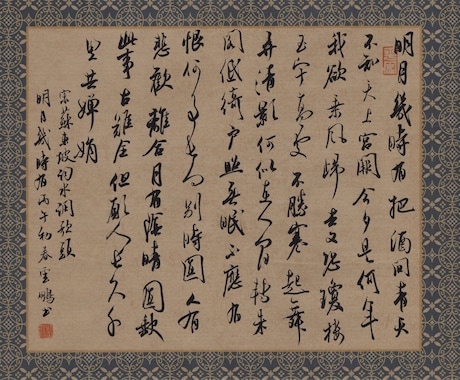 明月幾時有把酒問青天
不知天上宮闕今夕是何年
我欲乘風歸去又恐瓊樓
玉宇高處不勝寒起舞
弄清影何似在人間轉朱
閣低綺戶照無眠不應有
恨何事長向別時圓人有
悲歡離合月有陰晴圓缺
此事古難全但願人長久千
里共嬋娟
宋蘇東坡詞水調歌頭
明月幾時有丙午初春雲鵬書